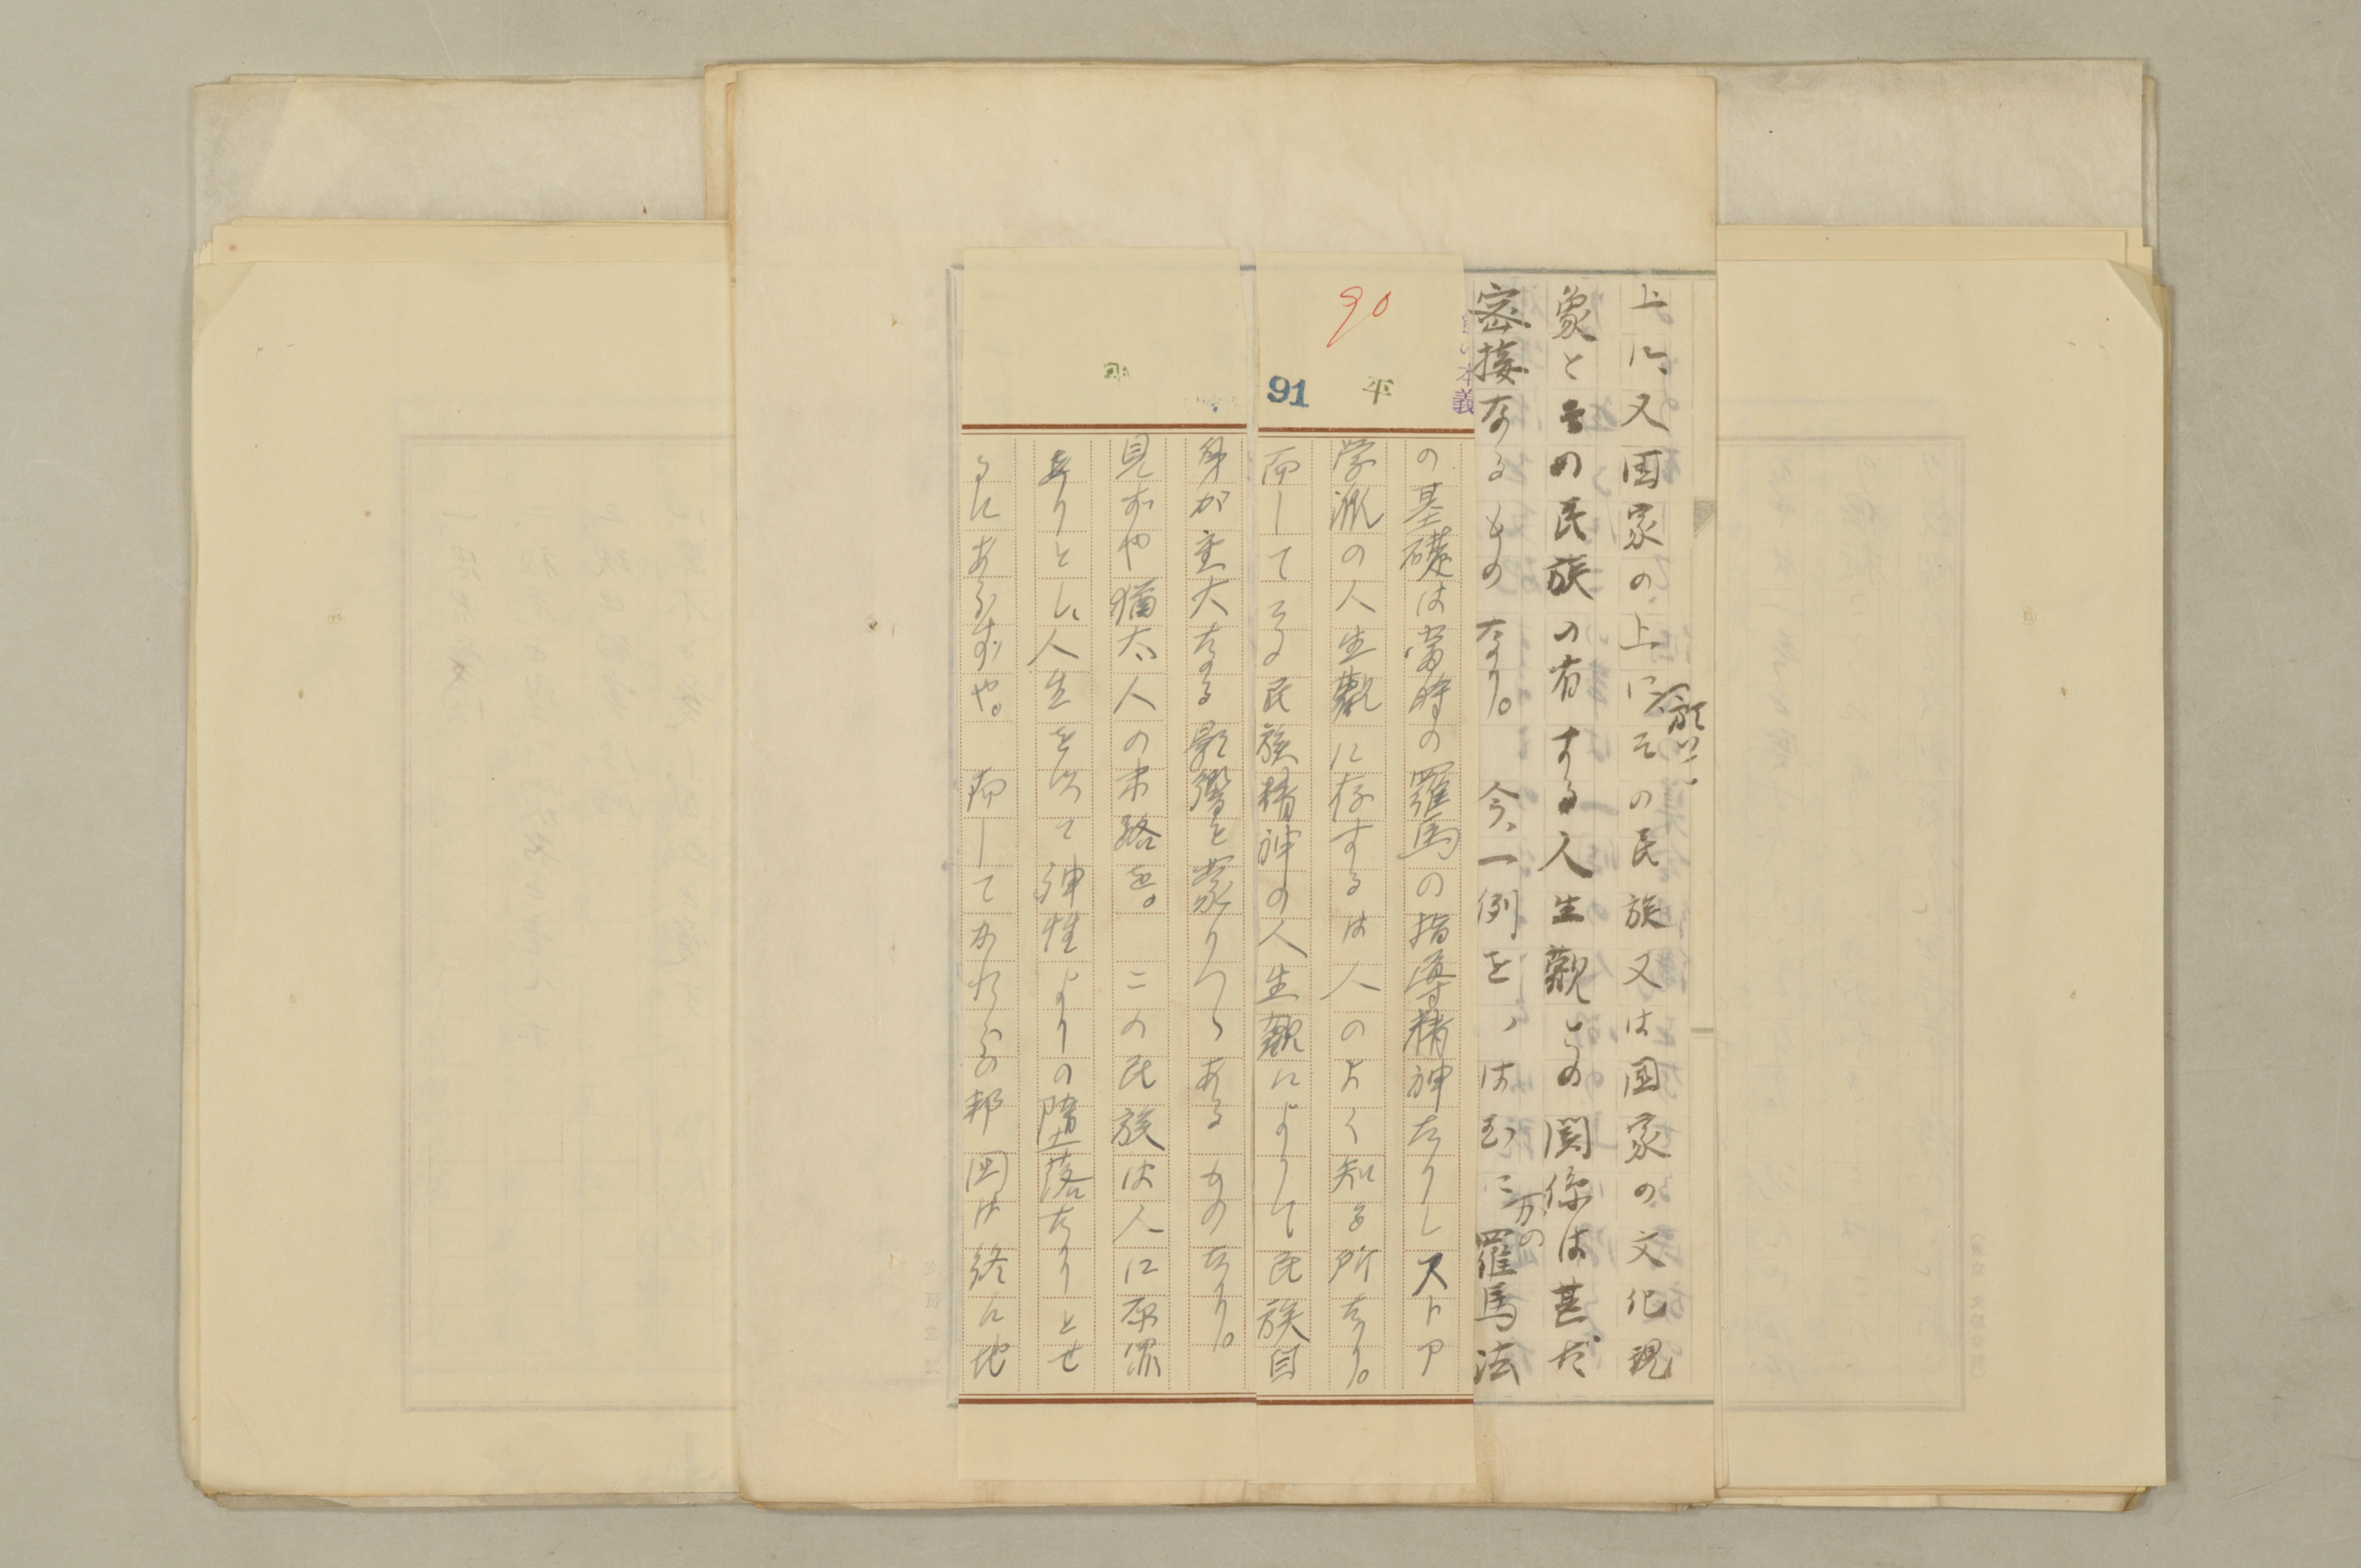 上に、又国家の上に、その民族又は国家の文化現
象とその民族の有する人生觀との関係は甚だ
密接なるものなり。　今、一例を
羅馬法
の基礎は當時の羅馬の指導精神なりしストア
学派の人生觀に存するは人のよく知る所なり。
而してその民族精神の人生觀によりて民族自
身が重大なる影響を蒙りつゝあるものなり。
見ずや猶太人の末路を。　この民族は人に原罪
ありとし、人生を以て神性よりの堕落なりとせ
るにあらずや。　而してかれらの邦国は終に地
90
91
平
本義